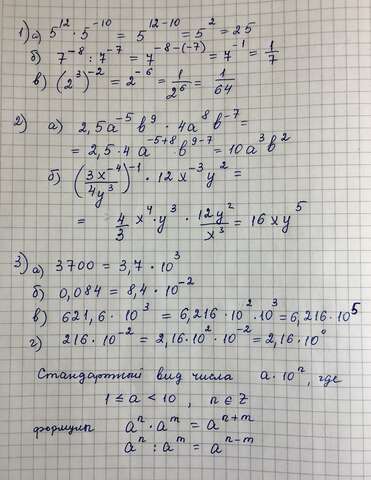 1) а) 5¹² · 5⁻¹⁰ = 5¹²⁻¹⁰ = 5² = 25
б) 7⁻⁸ : 7⁻⁷ = 7⁻⁸⁻⁽⁻⁷⁾ = 7⁻¹ = 1/7
в) (2³)⁻² = 2⁻⁶ = 1/2⁶ = 1/64
2) а) 2,5a⁻⁵b⁹ · 4a⁸b⁻⁷ =
= 2,5 · 4 a⁻⁵⁺⁸ b⁹⁻⁷ = 10a³b²
б) (3x⁻⁴/4y³)⁻¹ · 12x⁻³y² =
= 4/3 x⁴ · y³ · 12y²/x³ = 16xy⁵
3) а) 3700 = 3,7 · 10³
б) 0,084 = 8,4 · 10⁻²
в) 621,6 · 10³ = 6,216 · 10² · 10³ = 6,216 · 10⁵
г) 216 · 10⁻² = 2,16 · 10² · 10⁻² = 2,16 · 10⁰
Стандартный вид числа a · 10ⁿ, где
1 ≤ a < 10, n ∈ Z
формулы aⁿ · aᵐ = aⁿ⁺ᵐ
aⁿ : aᵐ = aⁿ⁻ᵐ